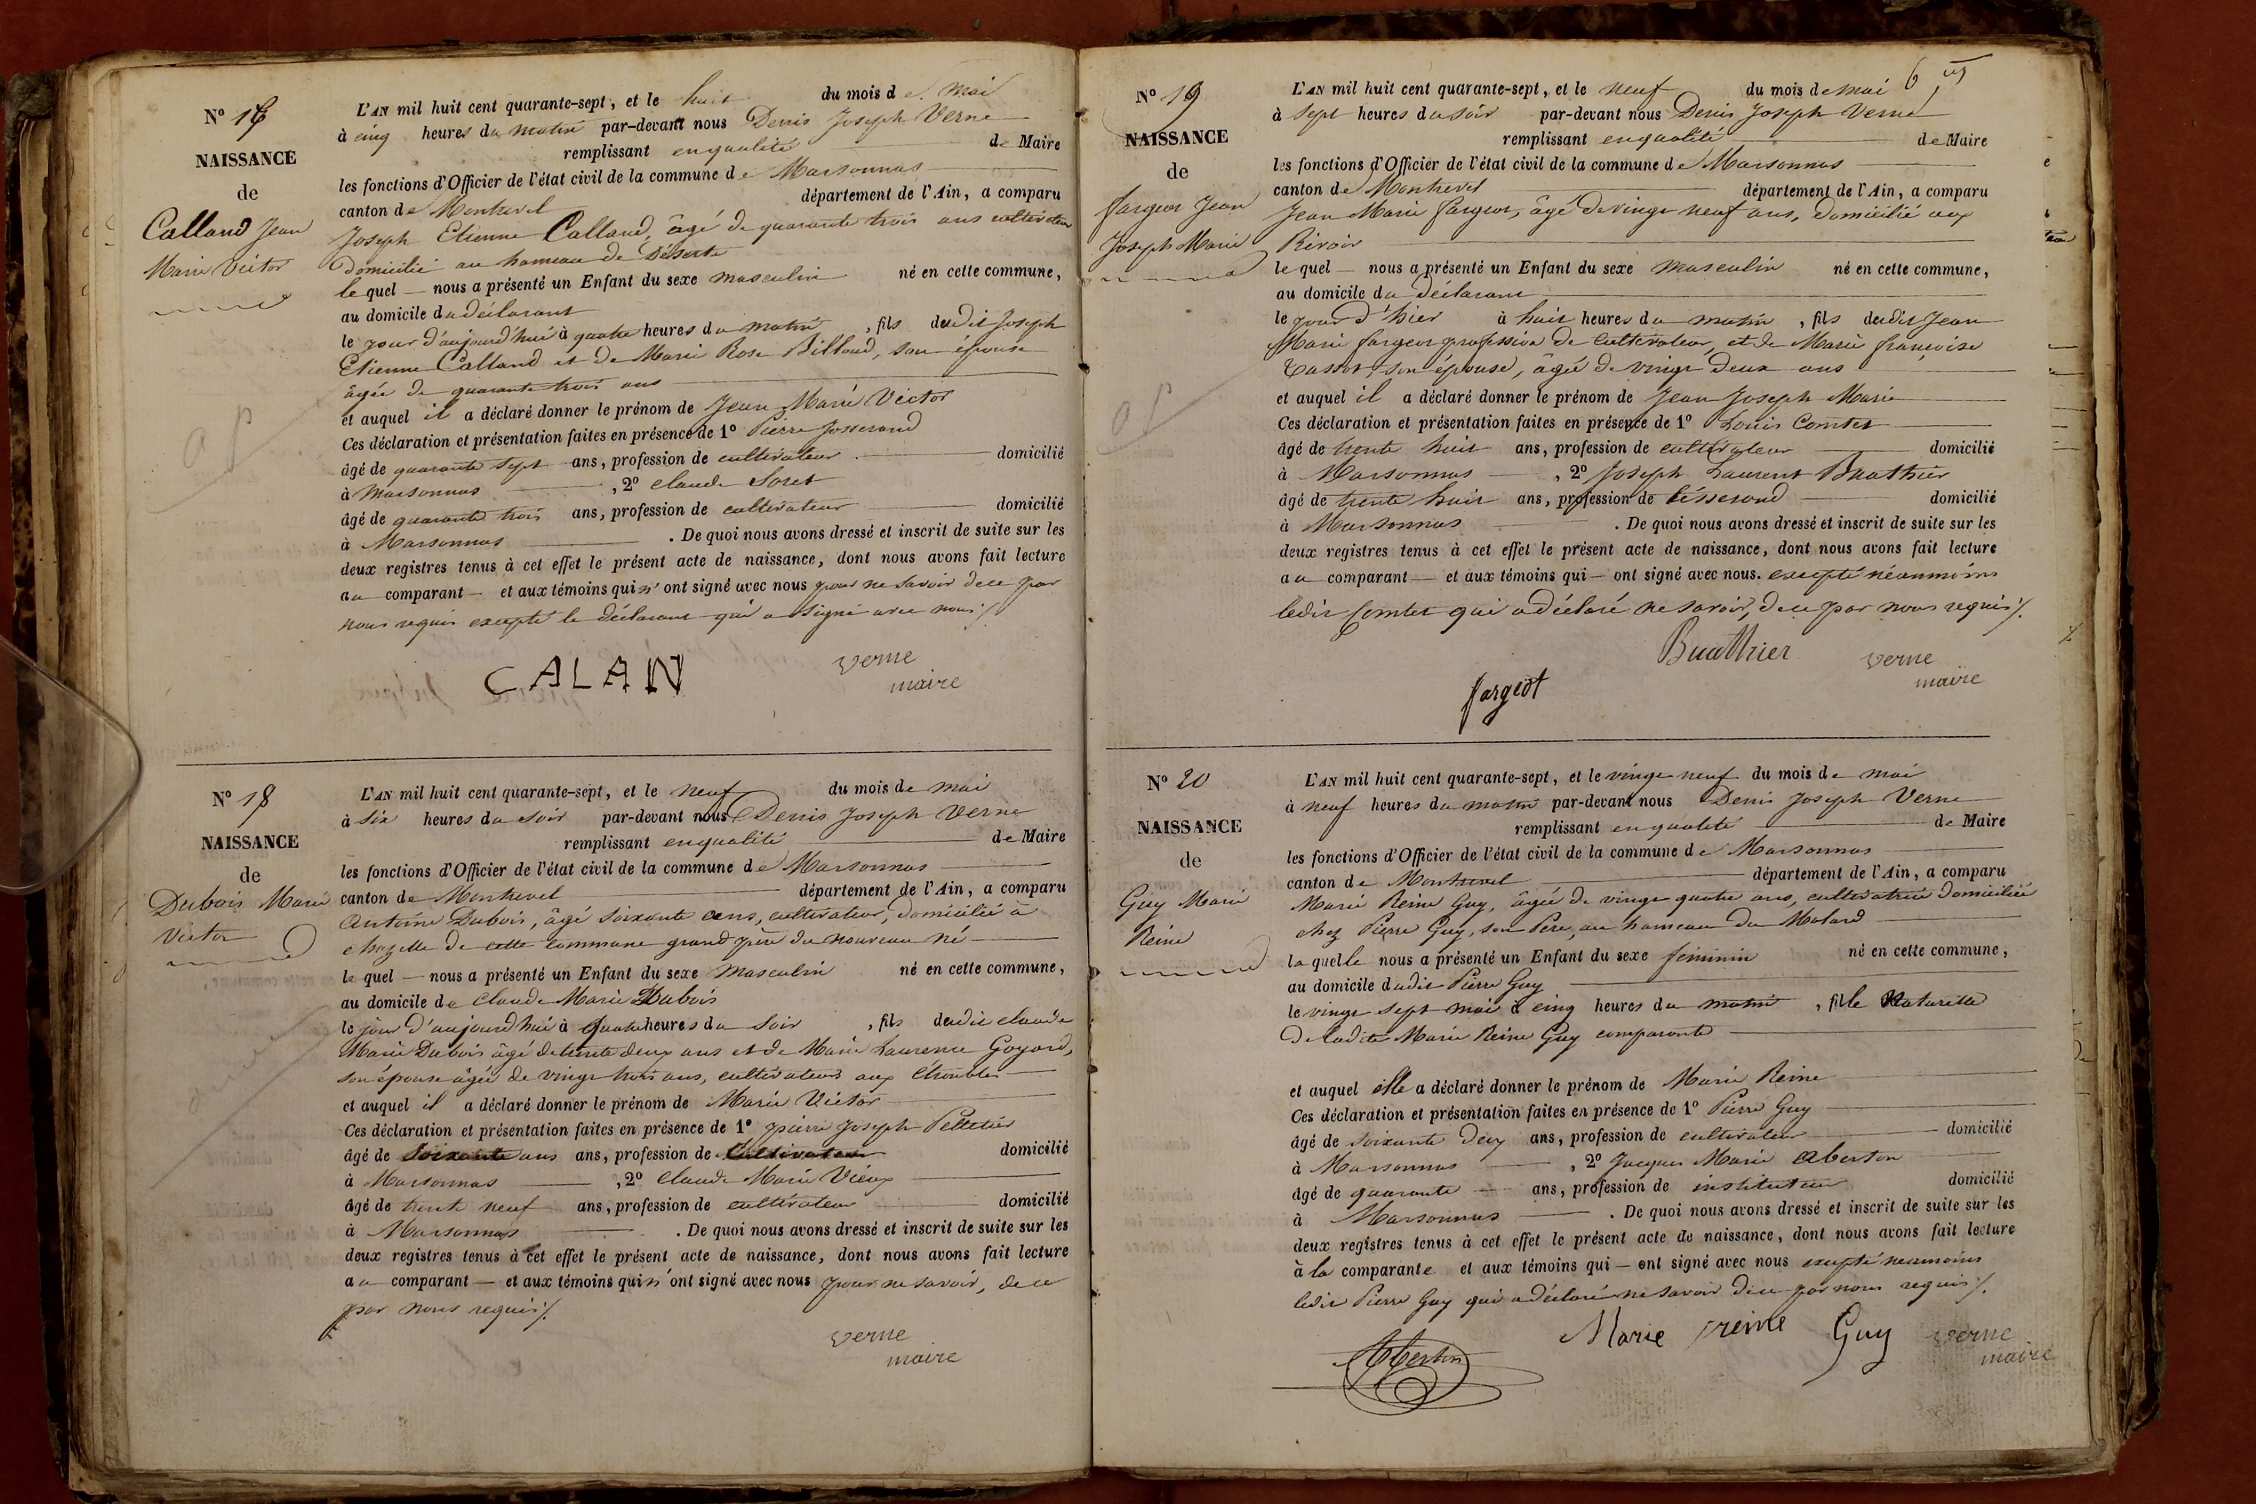 Nº 17
NAISSANCE
de
Calland Jean
Marie Victor
L'AN mil huit cent quarante-sept, et le huit du mois de Mai
à cinq heures du matin par-devant nous Denis Joseph Verne
remplissant en qualité de Maire
les fonctions d'Officier de l'état civil de la commune de Marsonnas
canton de Montrevel département de l'Ain, a comparu
Joseph Etienne Calland, âgé de quarante trois ans cultivateur
domicilié au hameau de Déserte
le quel nous a présenté un Enfant du sexe masculin né en cette commune,
au domicile du déclarant
le jour d'aujourd'hui à quatre heures du matin, fils dudit Joseph
Etienne Calland et de Marie Rose Billoud, son épouse
âgée de quarante trois ans
et auquel il a déclaré donner le prénom de Jean Marie Victor
Ces déclaration et présentation faites en présence de 1º Pierre Josserand
âgé de quarante sept ans, profession de cultivateur domicilié
à Marsonnas, 2º Claude Soret
âgé de quarante trois ans, profession de cultivateur domicilié
à Marsonnas. De quoi nous avons dressé et inscrit de suite sur les
deux registres tenus à cet effet le présent acte de naissance, dont nous avons fait lecture
au comparant et aux témoins qui n'ont signé avec nous pour ne savoir de ce par
nous requis excepté le déclarant qui a signé avec nous
CALAN
Verne
maire
Nº 18
NAISSANCE
de
Dubois Marie
Victor
L'AN mil huit cent quarante-sept, et le neuf du mois de mai
à six heures du soir par-devant nous Denis Joseph Verne
remplissant en qualité de Maire
les fonctions d'Officier de l'état civil de la commune de Marsonnas
canton de Montrevel département de l'Ain, a comparu
Antoine Dubois, âgé soixante ans, cultivateur, domicilié à
chazelle de cette commune grand père du nouveau né
le quel nous a présenté un Enfant du sexe Masculin né en cette commune,
au domicile de Claude Marie Dubois
le jour d'aujourd'hui à quatre heures du soir, fils dudit claude
Marie Dubois âgé de trente deux ans et de Marie Laurence Goyard,
son épouse âgée de vingt trois ans, cultivateurs aux
et auquel il a déclaré donner le prénom de Marie Victor
Ces déclaration et présentation faites en présence de 1º pierre Joseph Pelletier
âgé de soixante ans ans, profession de Cultivateur domicilié
à Marsonnas, 2º Claude Marie Vieux
âgé de trente neuf ans, profession de cultivateur domicilié
à Marsonnas. De quoi nous avons dressé et inscrit de suite sur les
deux registres tenus à cet effet le présent acte de naissance, dont nous avons fait lecture
au comparant et aux témoins qui n'ont signé avec nous pour ne savoir, de ce
par nous requis
Verne
maire
6
Nº 19
NAISSANCE
de
fargeot Jean
Joseph Marie
L'AN mil huit cent quarante-sept, et le neuf du mois de mai
à sept heures du soir par-devant nous Denis Joseph Verne
remplissant en qualité de Maire
les fonctions d'Officier de l'état civil de la commune de Marsonnas
canton de Montrevel département de l'Ain, a comparu
Jean Marie fargeot, âgé de vingt neuf ans, domicilié aux
Rivoir
le quel nous a présenté un Enfant du sexe masculin né en cette commune,
au domicile du déclarant
le jour d'hier à huit heures du matin, fils dudit Jean
Marie fargeot profession de cultivateur, et de Marie françoise
son épouse, âgée de vingt deux ans
et auquel il a déclaré donner le prénom de Jean Joseph Marie
Ces déclaration et présentation faites en présence de 1º Louis Comtet
âgé de trente huit ans, profession de cultivateur domicilié
à Marsonnas, 2º Joseph Laurent Buathier
âgé de trente huit ans, profession de tisserand domicilié
à Marsonnas. De quoi nous avons dressé et inscrit de suite sur les
deux registres tenus à cet effet le présent acte de naissance, dont nous avons fait lecture
au comparant et aux témoins qui ont signé avec nous. excepté néanmoins
ledit Comtet qui a déclaré ne savoir, de ce par nous requis
Buathier
Verne
maire
fargeot
Nº 20
NAISSANCE
de
Guy Marie
Reine
L'AN mil huit cent quarante-sept, et le vingt neuf du mois de mai
à neuf heures du matin par-devant nous Denis Joseph Verne
remplissant en qualité de Maire
les fonctions d'Officier de l'état civil de la commune de Marsonnas
canton de Montrevel département de l'Ain, a comparu
Marie Reine Guy, âgée de vingt quatre ans, cultivatrice domiciliée
chez Pierre Guy, son Père, au hameau du Molard
la quelle nous a présenté un Enfant du sexe féminin né en cette commune,
au domicile dudit Pierre Guy
le vingt sept mai à cinq heures du matin, fille Naturelle
De ladite Marie Reine Guy comparante
et auquel elle a déclaré donner le prénom de Marie Reine
Ces déclaration et présentation faites en présence de 1º Pierre Guy
âgé de soixante deux ans, profession de cultivateur domicilié
à Marsonnas, 2º Jacques Marie Aberton
âgé de quarante ans, profession de instituteur domicilié
à Marsonnas. De quoi nous avons dressé et inscrit de suite sur les
deux registres tenus à cet effet le présent acte de naissance, dont nous avons fait lecture
à la comparante et aux témoins qui ont signé avec nous excepté neanmoins
ledit Pierre Guy qui a déclaré ne savoir de ce par nous requis
Marie reine Guy
Verne
maire